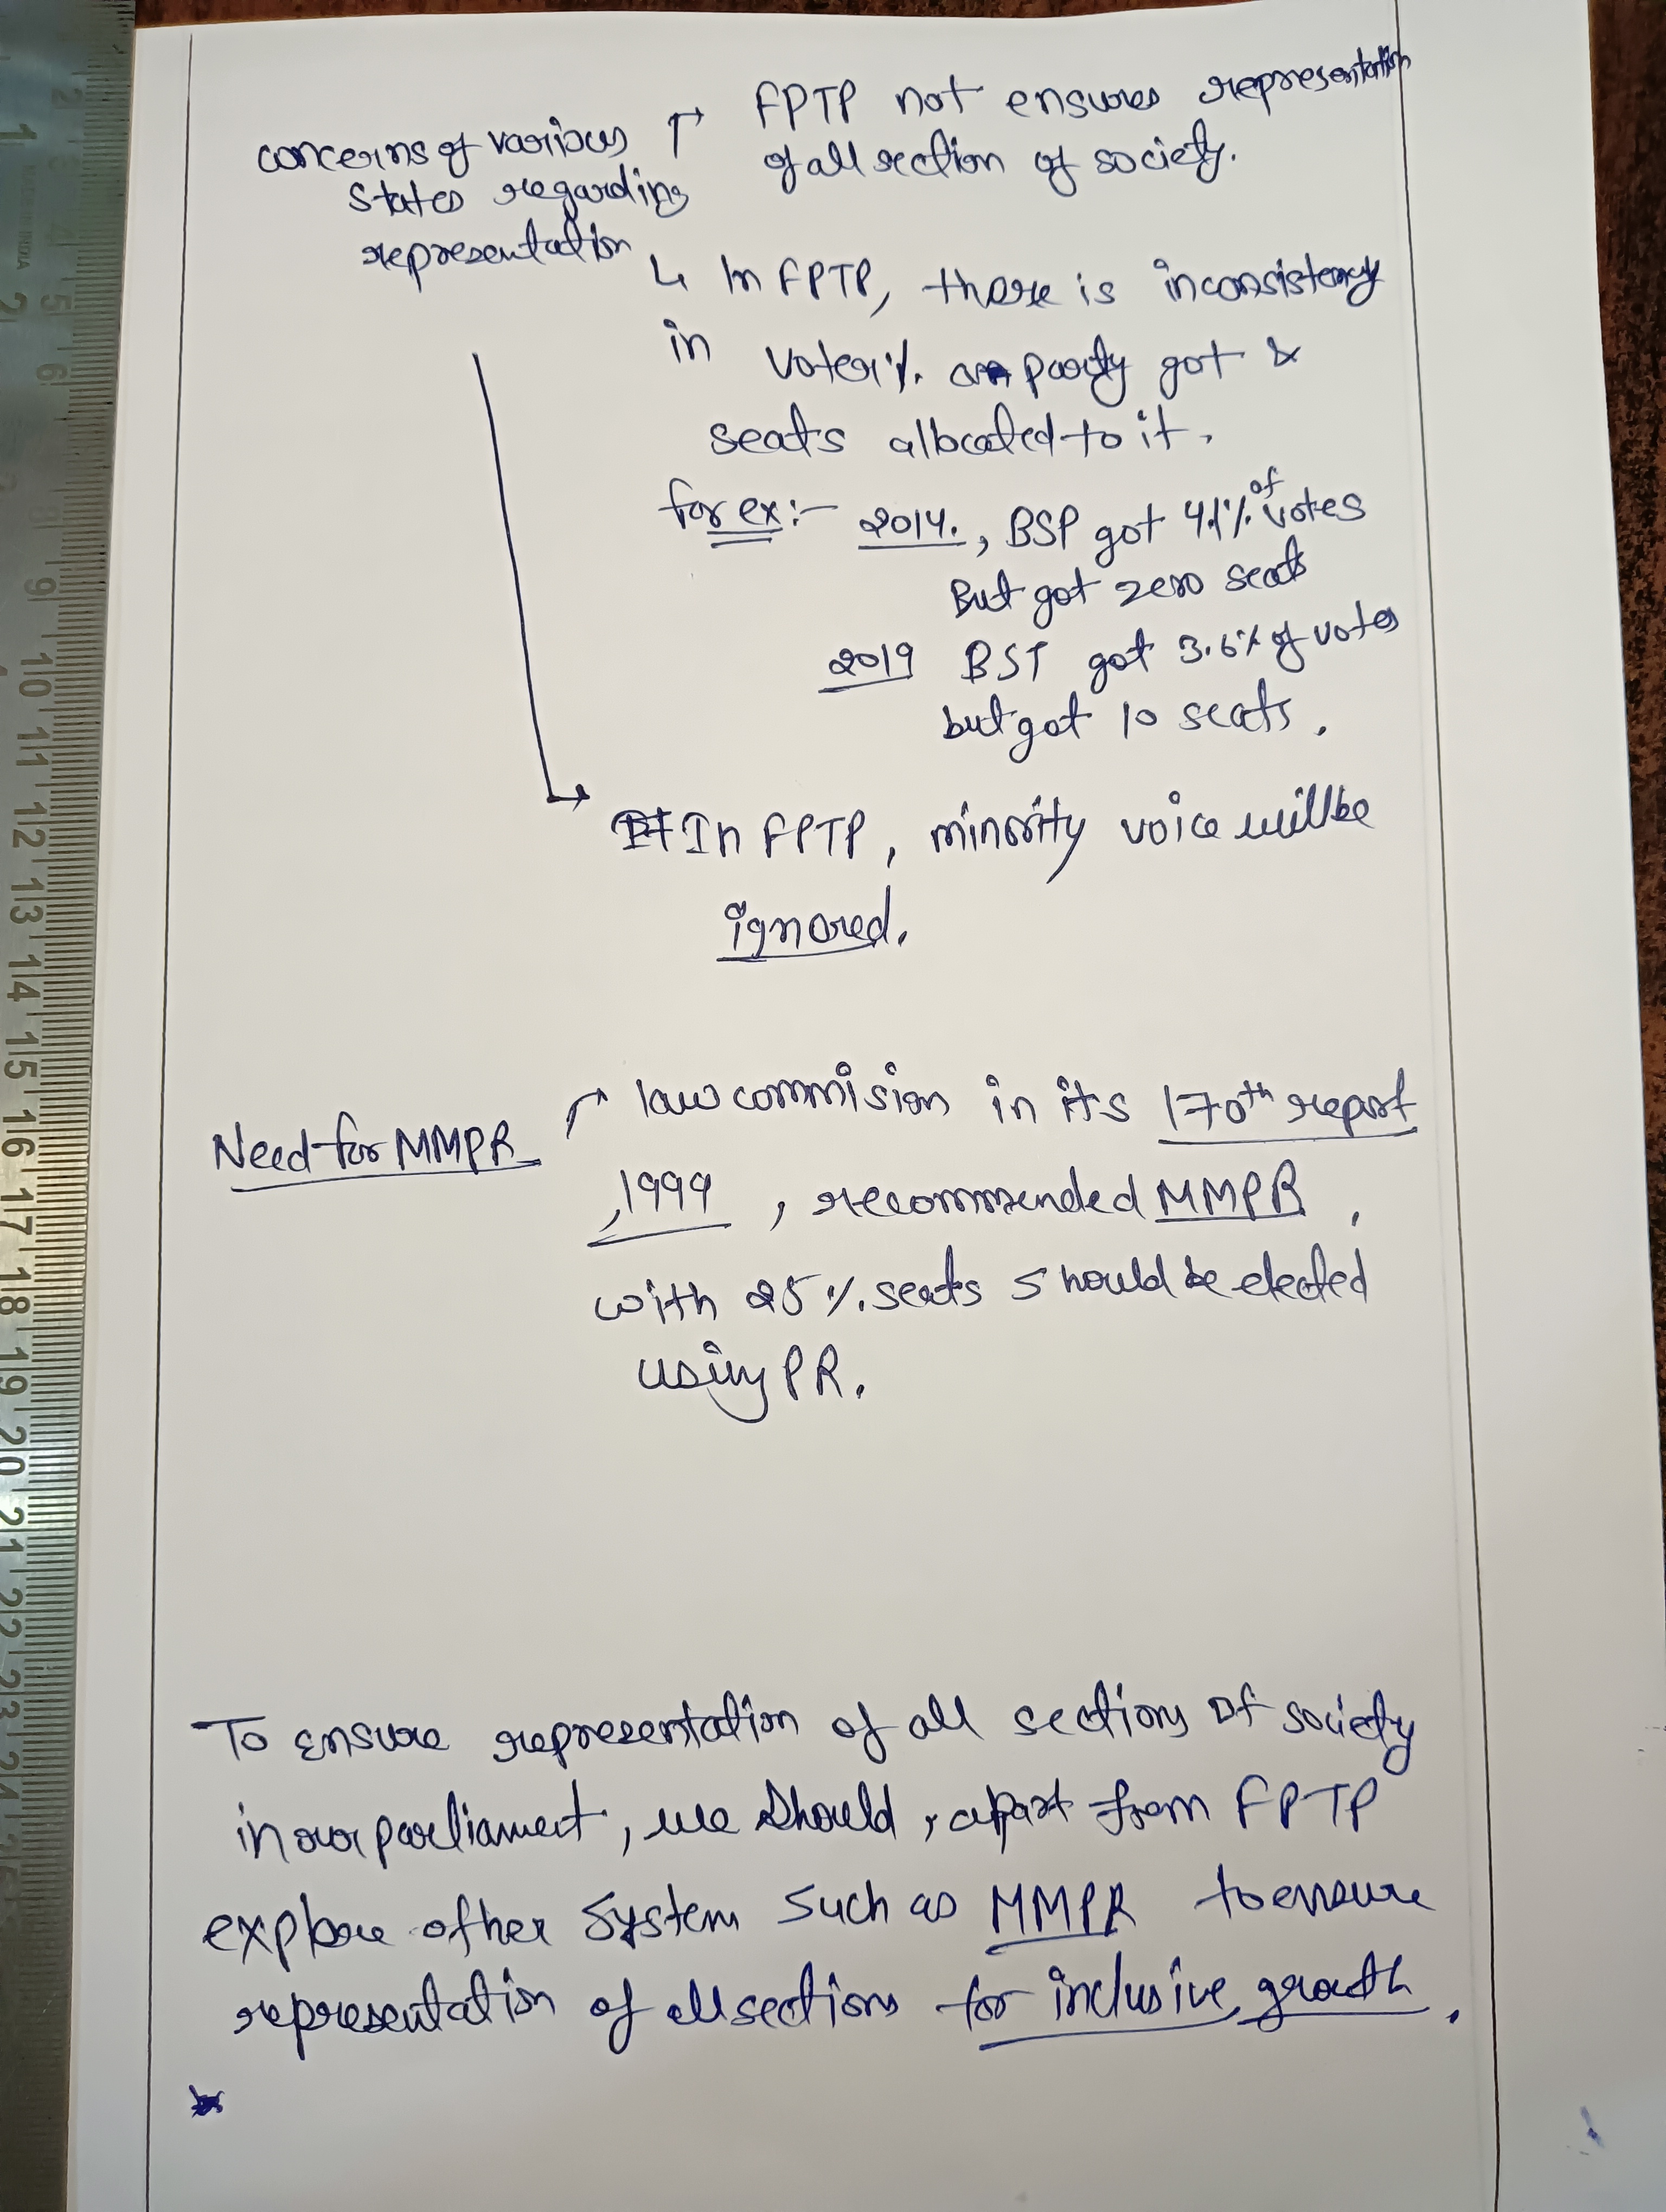 concerns of various
states regarding
representation
FPTP not ensures representation
of all section of society.
In FPTP, there is inconsistency
in voter % party got &
seats allocated to it.
for ex:- 2014., BSP got 4.1% of votes
But got zero seats
2019 BST got 3.6% of votes
but got 10 seats.
In FPTP, minority voice will be
ignored.
Need for MMPR
law commision in its 170th report
,1999, recommended MMPR,
with 25 % seats should be elected
using PR.
To ensure representation of all sections of society
in our parliament, we should, apart from FPTP
explore other system such as MMPR to ensure
representation of all sections for inclusive growth.